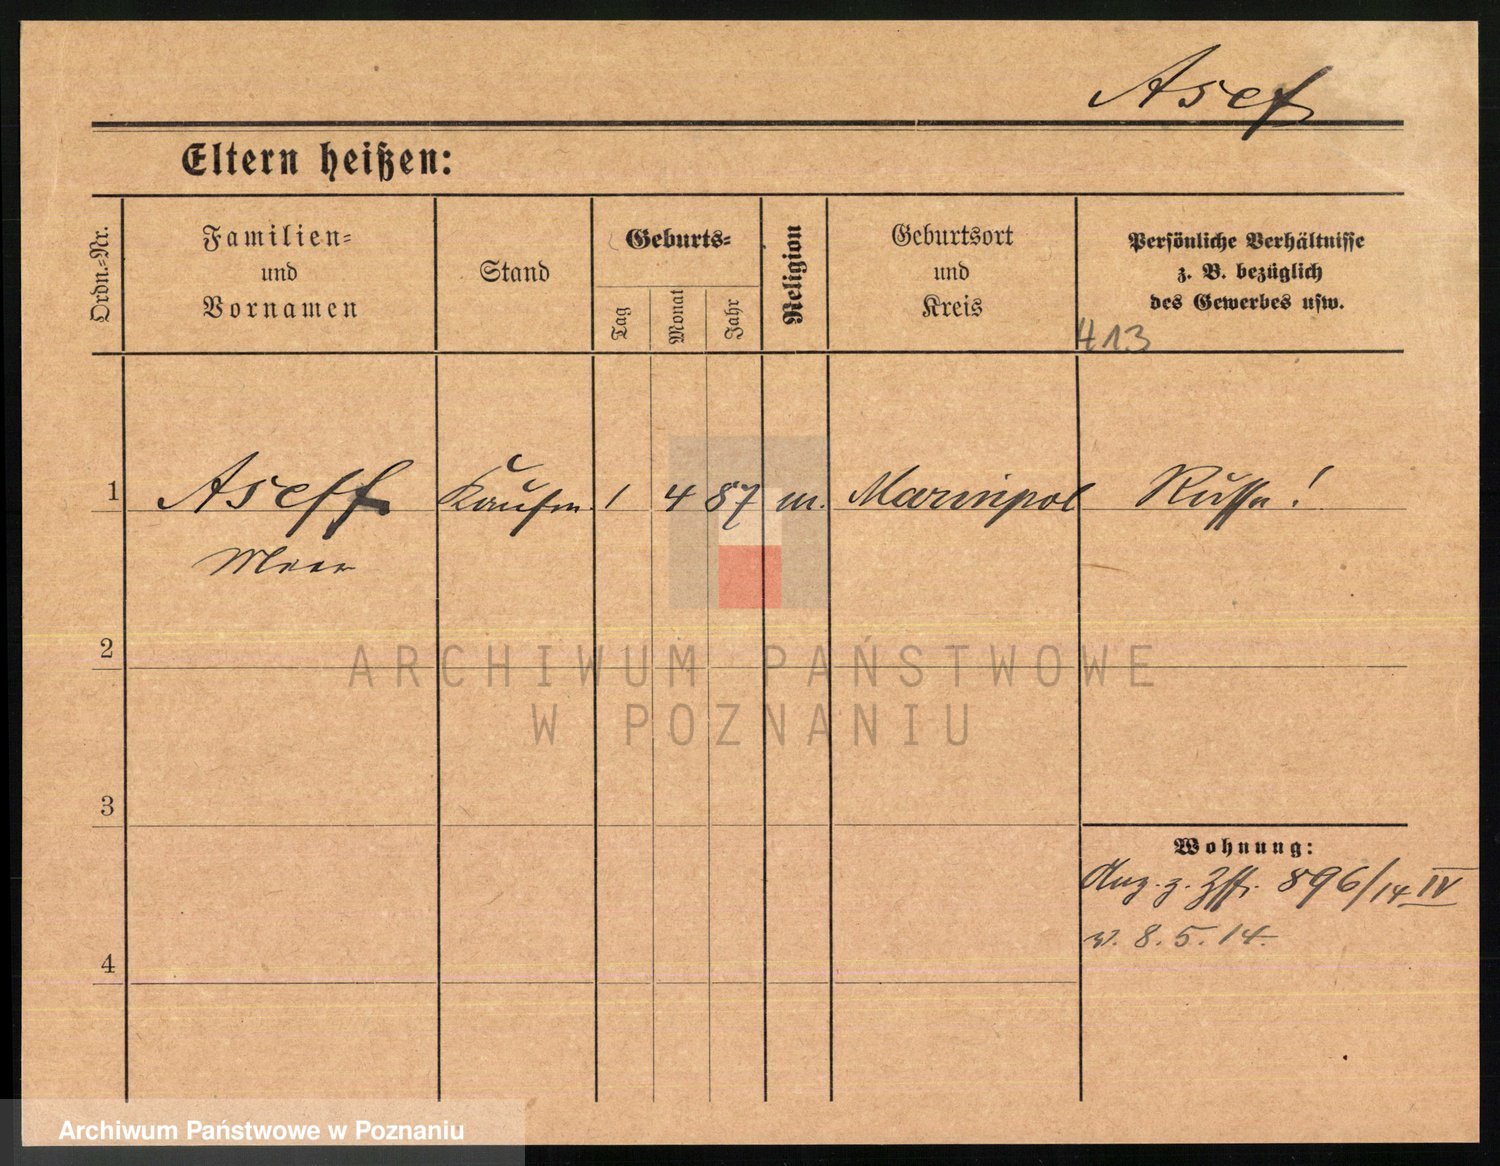 Asef
Eltern heißen:
Ordn.-Nr.
Familien-
und
Vornamen
Stand
Geburts-
Tag
Monat
Jahr
Religion
Geburtsort
und
Kreis
Persönliche Verhältnisse
z. B. bezüglich
des Gewerbes usw.
413
1 Aseff Kaufm. 1 4 87 m. Marinpol Russe!
Meer
2
ARCHIWUM PAŃSTWOWE
W POZNANIU
3
Wohnung:
Anz. z. 896/14 IV
v. 8. 5. 14.
4
Archiwum Państwowe w Poznaniu